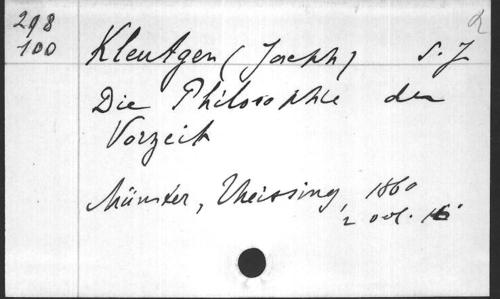 298
100
2
Kleutgen (Joseph) S.J
Die Philosophie der
Vorzeit
Münster, Theissing, 1860
2 vol.